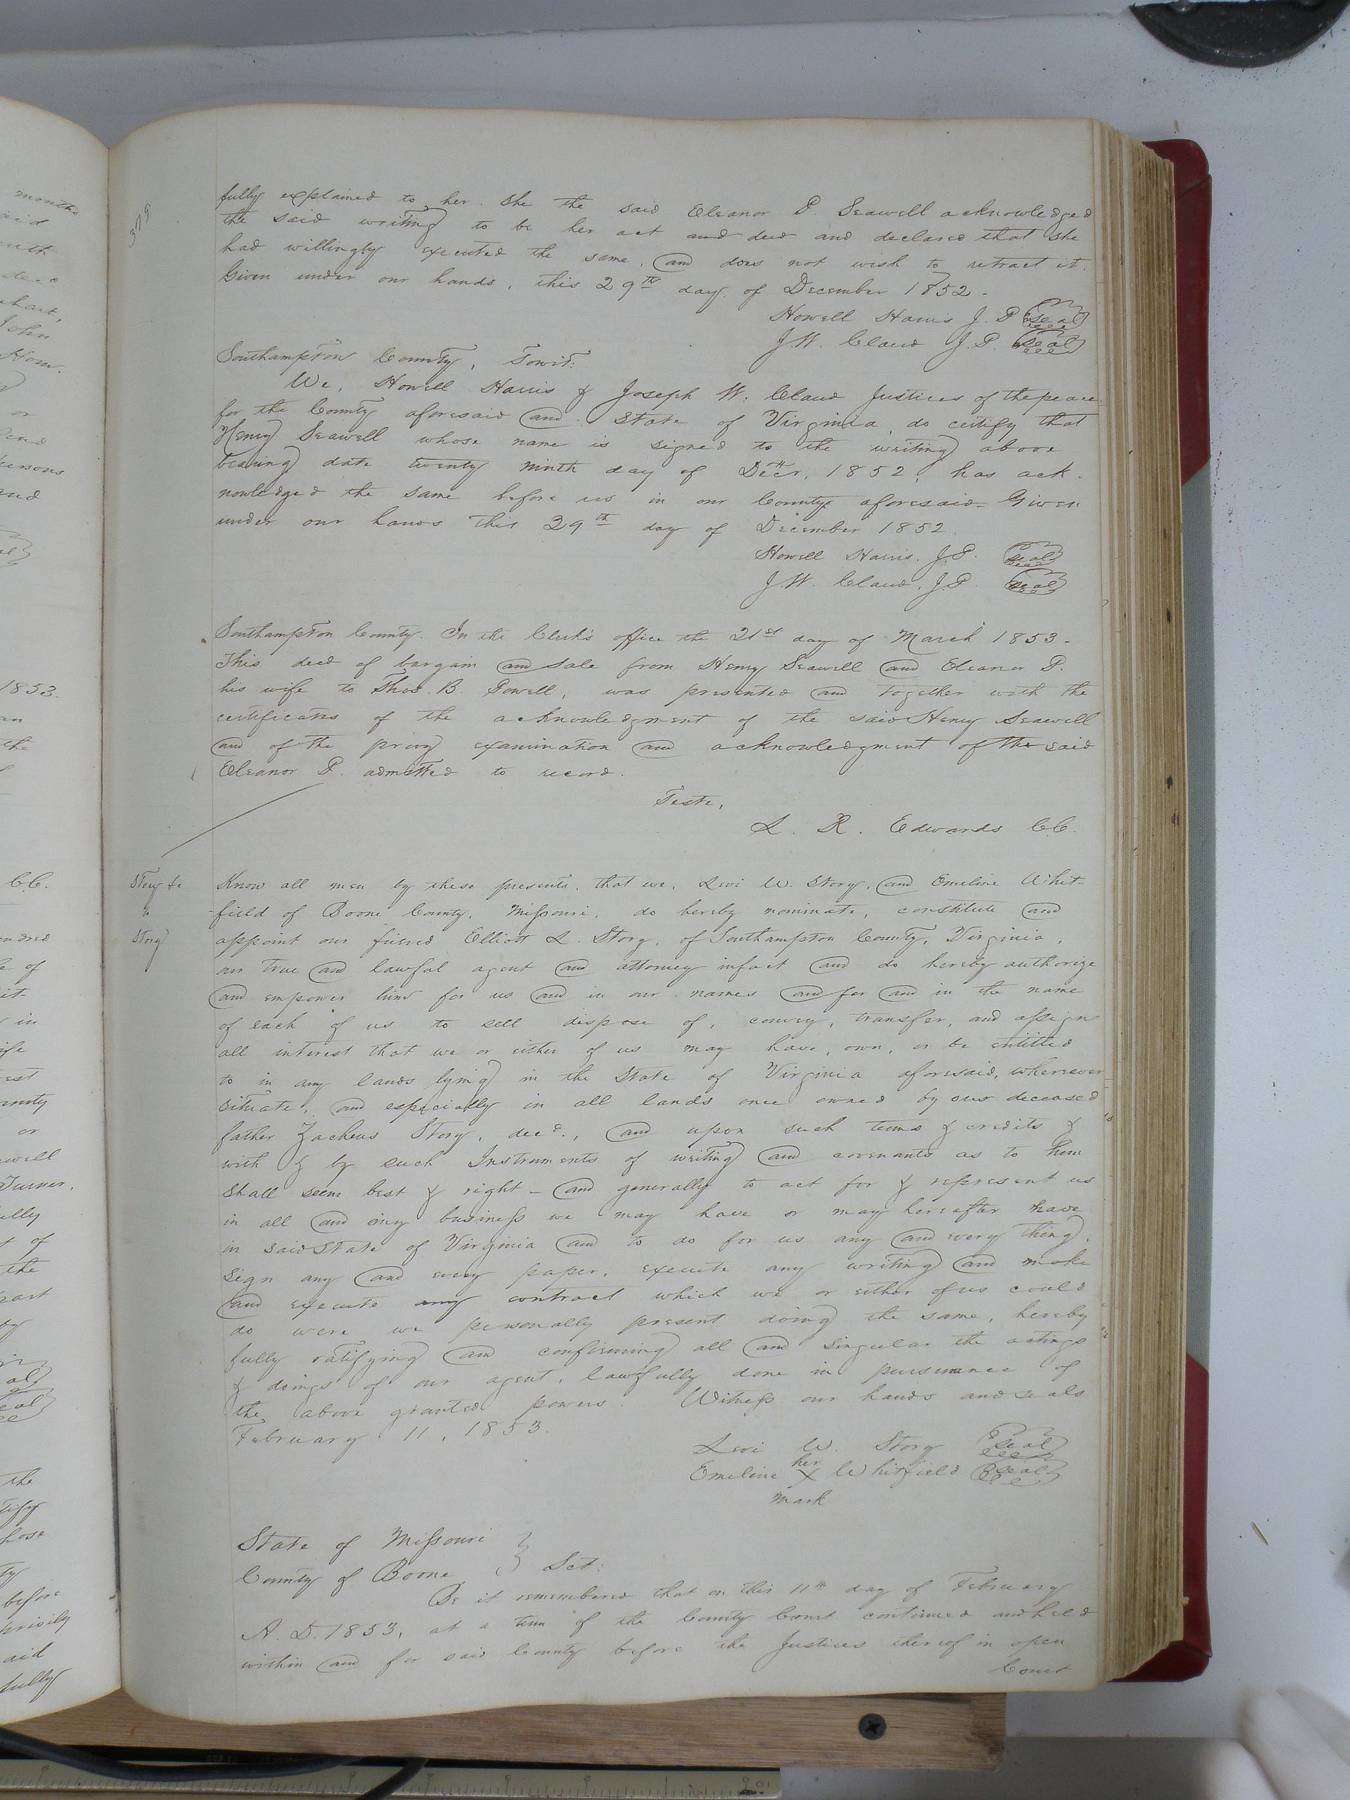 fully explained to her. She the said Eleanor P. Seawell acknowledged
the said writing to be her act and deed and declared that she
had willingly executed the same, and does not wish to retract it.
Given under our hands, this 29th day of December 1852.
Howell Harris J. P. seal
J. W. Claud J. P. seal
Southampton County, Towit:
We, Howell Harris & Joseph W. Claud Justices of the peace
for the County aforesaid and State of Virginia do certify that
Henry Seawell whose name is signed to the writing above
bearing date twenty ninth day of Decr. 1852, has ack-
nowledged the same before us in our County aforesaid. Given
under our hands this 29th day of December 1852.
Howell Harris. J. P. seal
J. W. Claud. J. P. seal
Southampton County. In the Clerk's office the 21st day of March 1853.
This deed of bargain and sale from Henry Seawell and Eleanor P.
his wife to Thos. B. Powell, was presented and together with the
certificates of the acknowledgment of the said Henry Seawell
and of the privy examination and acknowledgment of the said
Eleanor P. admitted to record.
Teste,
L. R. Edwards CC.
Story &c
to
Story
Know all men by these presents, that we, Levi W. Story, and Emeline Whit-
field of Boone County, Missouri, do hereby nominate, constitute and
appoint our friend Elliott L. Story, of Southampton County, Virginia,
our true and lawful agent and attorney in fact and do hereby authorize
and empower him for us and in our names and for and in the name
of each of us to sell dispose of, convey, transfer, and assign
all interest that we or either of us may have, own, or be entitled
to in any lands lying in the State of Virginia aforesaid, wherever
situate, and especially in all lands once owned by our deceased
father Zacheus Story, decd., and upon such terms & credits &
with & by such Instruments of writing and covenants as to him
shall seem best & right - and generally to act for & represent us
in all and any business we may have or may hereafter have
in said State of Virginia and to do for us any and every thing,
sign any and every paper, execute any writing and make
and execute any contract which we or either of us could
do were we personally present doing the same, hereby
fully ratifying and confirming all and singular the actings
& doings of our agent, lawfully done in pursuance of
the above granted powers. Witness our hands and seals
February 11, 1853.
Levi W. Story seal
Emeline her X Whitfield seal
mark
State of Missouri
County of Boone } Sct:
Be it remembered that on this 11th day of February
A. D. 1853, at a term of the County Court continued and held
within and for said County before the Justices thereof in open
Court